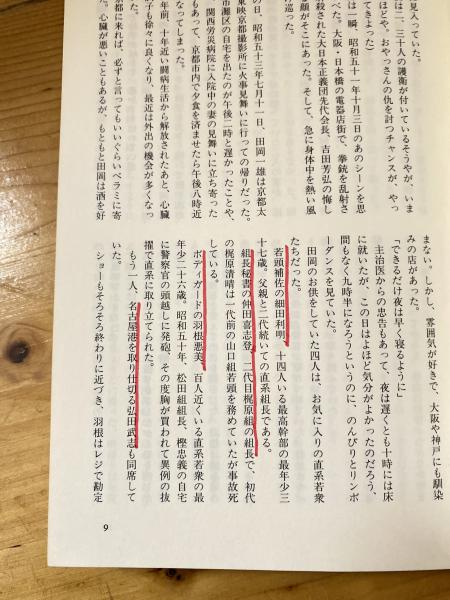 見入っていた。
は二、三十人の護衛が付いているそうやが、いま
ほどや。おやっさんの仇を討つチャンスが、やっ
てきよった)
は一瞬、昭和五十一年十月三日のあのシーンを思
べた。大阪・日本橋の電器店街で、拳銃を乱射さ
殺された大日本正義団先代会長、吉田芳弘の悔し
顔がそこにあった。そして、急に身体中を熱い風
巡った。
の日、昭和五十三年七月十一日、田岡一雄は京都太
東映京都撮影所に火事見舞いに行っての帰りだった。
市灘区の自宅を出たのが午後二時と遅かったことや、
関西労災病院に入院中の妻の見舞いに立ち寄った
もあって、京都市内で夕食を済ませたら午後八時近
なってしまった。
年前、十年近い闘病生活から解放されたあと、心臓
子も徐々に良くなり、最近は外出の機会が多くなっ
都に来れば、必ずと言ってもいいぐらいベラミに寄
た。心臓が悪いこともあるが、もともと田岡は酒を好
まない。しかし、雰囲気が好きで、大阪や神戸にも馴染
みの店があった。
「できるだけ夜は早く寝るように」
主治医からの忠告もあって、夜は遅くとも十時には床
に就いたが、この日はよほど気分がよかったのだろう、
間もなく九時半になろうというのに、のんびりとリンボ
ーダンスを見ていた。
田岡のお供をしていた四人は、お気に入りの直系若衆
たちだった。
若頭補佐の細田利明。十四人いる最高幹部の最年少三
十七歳。父親と二代続いての直系組長である。
組長秘書の仲田喜志登。二代目梶原組の組長で、初代
の梶原清晴は一代前の山口組若頭を務めていたが事故死
している。
ボディガードの羽根悪美。百人近くいる直系若衆の最
年少二十六歳。昭和五十年、松田組組長、樫忠義の自宅
に警察官の頭越しに発砲、その度胸が買われて異例の抜
擢で直系に取り立てられた。
もう一人、名古屋港を取り仕切る弘田武志も同席して
いた。
ショーもそろそろ終わりに近づき、羽根はレジで勘定
9